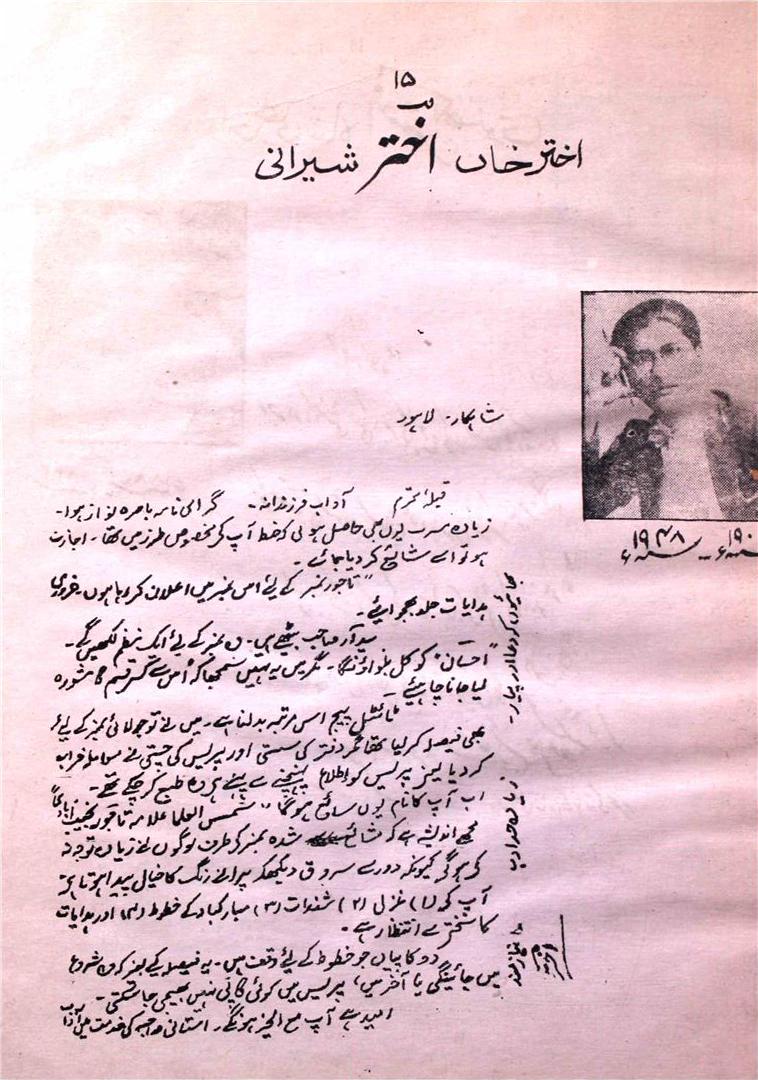 ۱۵
اختر خاں اختر شیرانی
۱۹۴۸ء
شاہکار۔ لاہور
قبلۂ محترم آداب فرزندانہ۔ گرامی نامہ باصرہ نواز ہوا۔
زیادہ مسرت یوں بھی حاصل ہوئی کہ خط آپ کے مخصوص طرز میں تھا۔ اجازت
ہو تو اسے شائع کر دیا جائے۔
"تاجور نمبر" کے لئے اس نمبر میں اعلان کر رہا ہوں ضروری
ہدایات جلد بھجوائیے۔
صاحب بیٹھے ہیں۔ وہ نمبر کے لئے ایک نظم لکھیں گے۔
"احسان" کو کل بلواؤنگا۔ مگر میں یہ نہیں سمجھا کہ اس سے کس قسم کا مشورہ
لیا جانا چاہئیے۔
ٹائٹل پیج اس مرتبہ بدلنا ہے۔ میں نے تو جولائی نمبر کے لئے
بھی فیصلہ کر لیا تھا مگر دفتر کی سستی اور پریس کی چستی نے معاملہ خراب
کر دیا یعنی پریس کو اطلاع پہنچنے سے پہلے ہی وہ طبع کر چکے تھے۔
اب آپ کا نام یوں شائع ہوگا "شمس العلما علامہ تاجور نجیب آبادی"
مجھے اندیشہ ہے کہ شائع شدہ نمبر کی طرف لوگوں نے زیادہ توجہ نہ
کی ہوگی کیونکہ دورے سرورق دیکھکر پرانے رنگ کا خیال پیدا ہوتا ہے
آپ کی (۱) غزل (۲) شذرات (۳) مبارکباد کے خطوط (۴) اور ہدایات
کا سختی سے انتظار ہے۔
دو کاپیاں جو خطوط کے لئے وقف ہیں۔ یہ فیصلہ کئے بغیر کہ وہ شروع
میں جائینگی یا آخر میں، پریس میں کوئی کاپی نہیں بھیجی جا سکتی۔
امید ہے آپ مع الخیر ہونگے۔ استانی صاحبہ کی خدمت میں آداب
بھائیوں کو دعا اور پیار۔
زیادہ حد ادب
نیازمند
اختر